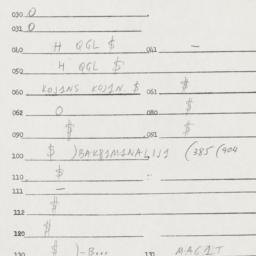 030 0
031 0
040 H QGL $ 041 —
050 H QGL $
060 KOJ1NS KOJ1N $ 061 $
062 0 080 $
090 $ 091 $
100 $ )BAK81M1NAL1J1 (385 (904
110 $
111 —
112 $
120 $
130 $ )-B... 131 MAG1T